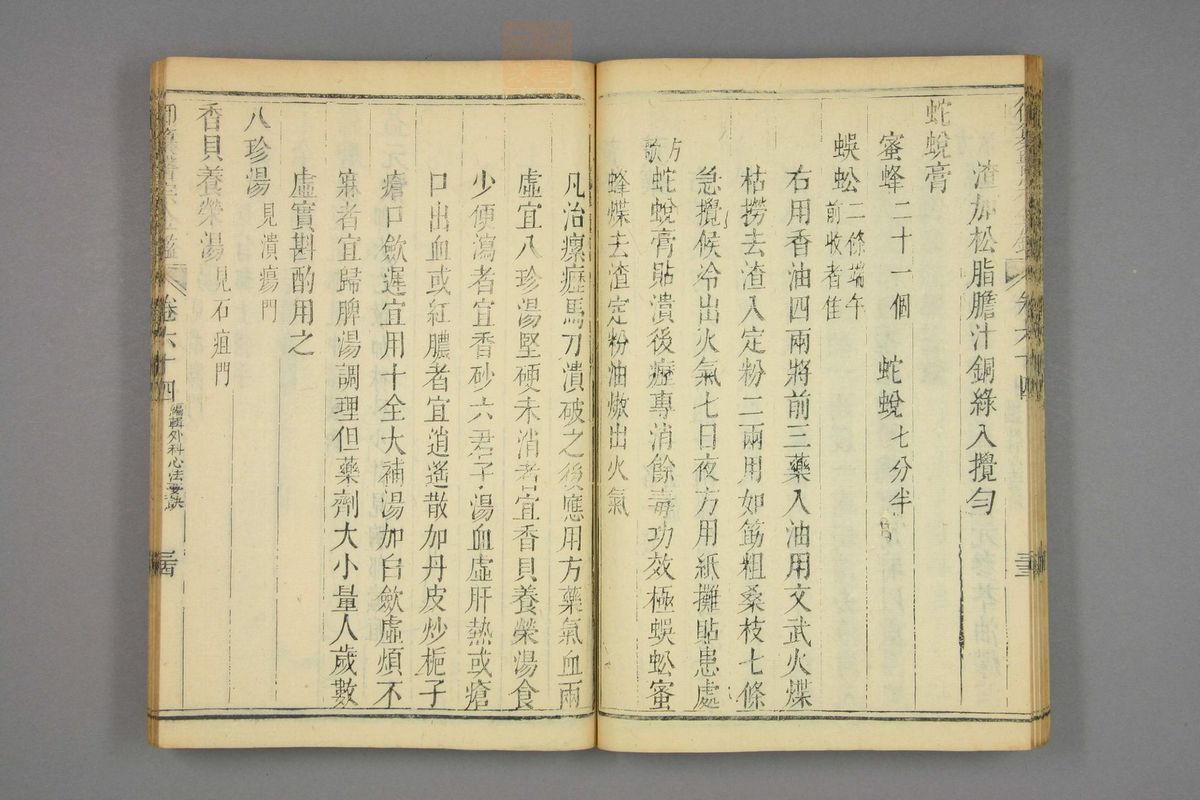 渣加松脂膽汁銅綠入攪勻
蛇蛻膏
蜜蜂二十一個　蛇蛻七分半
蜈蚣二條端午前收者佳
右用香油四兩將前三藥入油用文武火煠
枯撈去渣入定粉二兩用如筯粗桑枝七條
急攪候冷出火氣七日夜方用紙攤貼患處
方歌蛇蛻膏貼潰後癧專消餘毒功效極蜈蚣蜜
蜂煠去渣定粉油熬出火氣
凡治瘰癧馬刀潰破之後應用方藥氣血兩
虛宜八珍湯堅硬未消者宜香貝養榮湯食
少便瀉者宜香砂六君子湯血虛肝熱或瘡
口出血或紅膿者宜逍遙散加丹皮炒梔子
瘡口斂遲宜用十全大補湯加白斂虛煩不
寐者宜歸脾湯調理但藥劑大小量人歲數
虛實斟酌用之
八珍湯見潰瘍門
香貝養榮湯見石疽門
卷六十四
編輯外科心法要訣